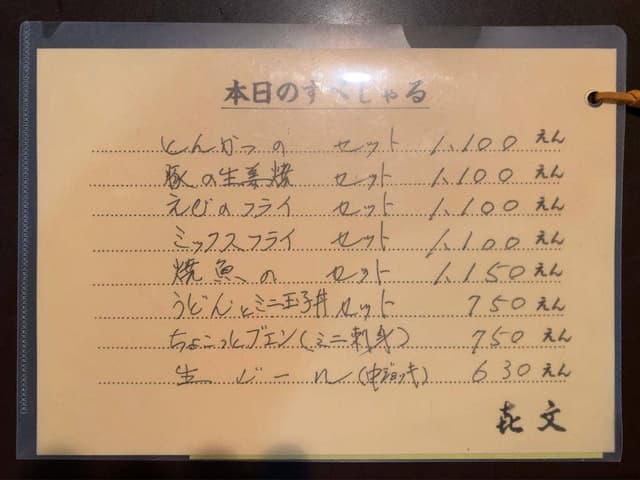 本日のすぺしゃる
とんかつの セット 1,100えん
豚の生姜焼 セット 1,100えん
えびのフライ セット 1,100えん
ミックスフライ セット 1,100えん
焼魚の セット 1,150えん
うどんとミニ玉子丼セット 750えん
ちょこっとブエン(ミニ刺身) 750えん
生ビール(中ジョッキ) 630えん
㐂文